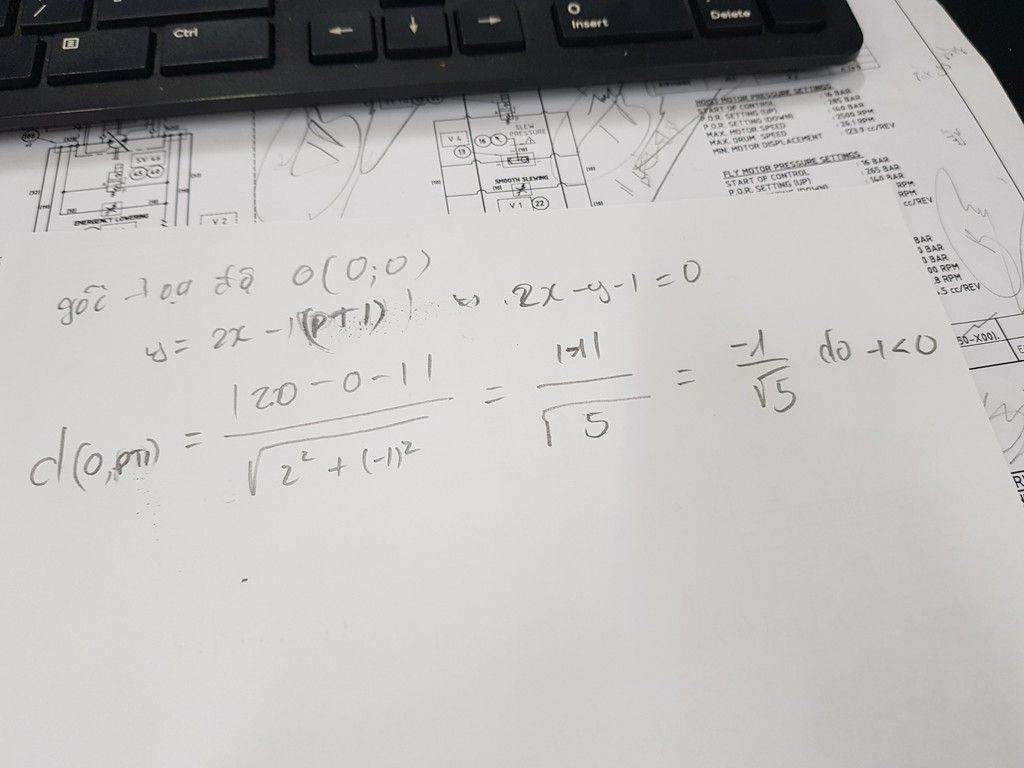 Ctrl
←
↓
→
0
Insert
Delete
SV 46
EMERGENCY LOWERING
V 2
V 4
13
16
SLEW
PRESSURE
SMOOTH SLEWING
V 1
22
MOTOR PRESSURE SETTINGS
START OF CONTROL : 16 BAR
P.O.R. SETTING (UP) : 285 BAR
P.O.R. SETTING (DOWN) : 160 BAR
MAX. MOTOR SPEED : 2500 RPM
MAX. DRUM SPEED : 26.1 RPM
MIN. MOTOR DISPLACEMENT : 123.9 cc/REV
FLY MOTOR PRESSURE SETTINGS
START OF CONTROL : 16 BAR
P.O.R. SETTING (UP) : 265 BAR
RPM
RPM
cc/REV
BAR
BAR
BAR
00 RPM
.8 RPM
.5 cc/REV
50-X001.
gốc tọa độ O(0;0)
y = 2x - 1 (pt1) ⇔ 2x - y - 1 = 0
d(0,pt1) = |2.0 - 0 - 1| / √2² + (-1)² = |-1| / √5 = -1/√5 do -1 < 0